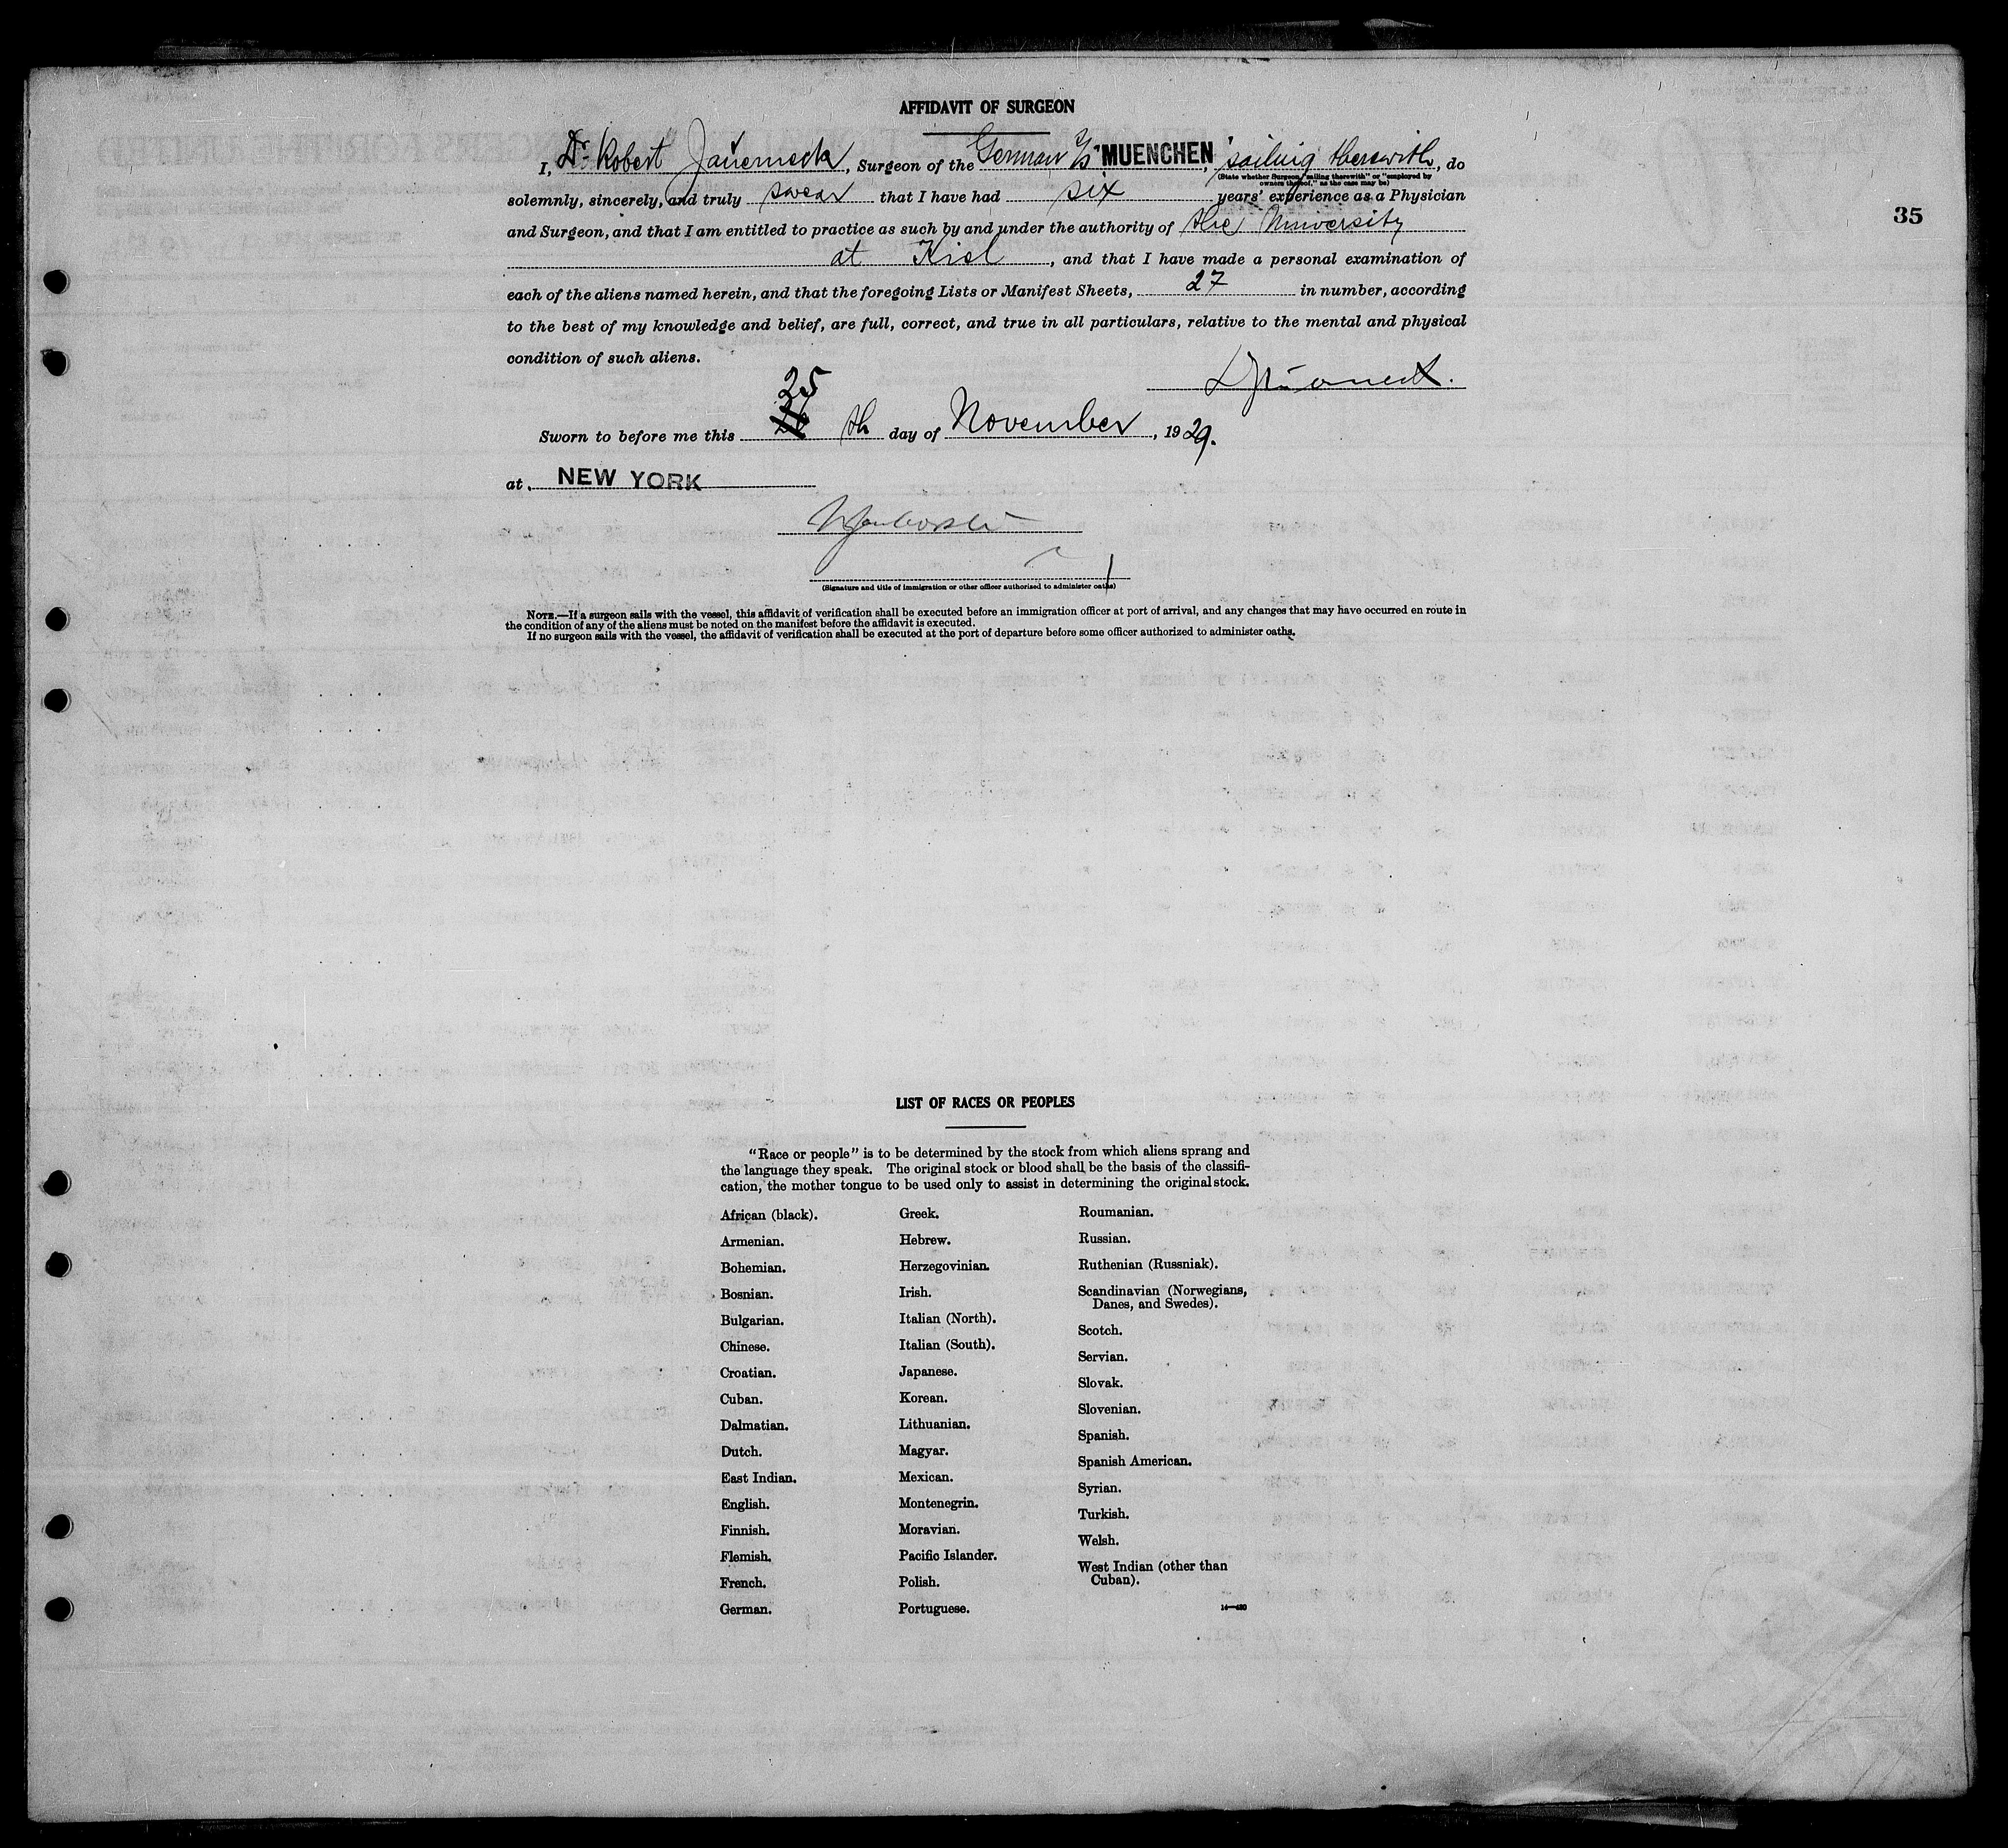 AFFIDAVIT OF SURGEON
I, Dr. Robert, Surgeon of the German "MUENCHEN", "sailing therewith", do
(State whether Surgeon, "sailing therewith" or "employed by
owners thereof," as the case may be)
solemnly, sincerely, and truly swear that I have had six years' experience as a Physician
and Surgeon, and that I am entitled to practice as such by and under the authority of the University
at Kiel, and that I have made a personal examination of
each of the aliens named herein, and that the foregoing Lists or Manifest Sheets, 27 in number, according
to the best of my knowledge and belief, are full, correct, and true in all particulars, relative to the mental and physical
condition of such aliens.
25
Sworn to before me this th day of November, 1929.
at NEW YORK
(Signature and title of immigration or other officer authorized to administer oaths)
NOTE.—If a surgeon sails with the vessel, this affidavit of verification shall be executed before an immigration officer at port of arrival, and any changes that may have occurred en route in
the condition of any of the aliens must be noted on the manifest before the affidavit is executed.
If no surgeon sails with the vessel, the affidavit of verification shall be executed at the port of departure before some officer authorized to administer oaths.
35
LIST OF RACES OR PEOPLES
"Race or people" is to be determined by the stock from which aliens sprang and
the language they speak. The original stock or blood shall be the basis of the classifi-
cation, the mother tongue to be used only to assist in determining the original stock.
African (black).
Armenian.
Bohemian.
Bosnian.
Bulgarian.
Chinese.
Croatian.
Cuban.
Dalmatian.
Dutch.
East Indian.
English.
Finnish.
Flemish.
French.
German.
Greek.
Hebrew.
Herzegovinian.
Irish.
Italian (North).
Italian (South).
Japanese.
Korean.
Lithuanian.
Magyar.
Mexican.
Montenegrin.
Moravian.
Pacific Islander.
Polish.
Portuguese.
Roumanian.
Russian.
Ruthenian (Russniak).
Scandinavian (Norwegians,
Danes, and Swedes).
Scotch.
Servian.
Slovak.
Slovenian.
Spanish.
Spanish American.
Syrian.
Turkish.
Welsh.
West Indian (other than
Cuban).
14—430